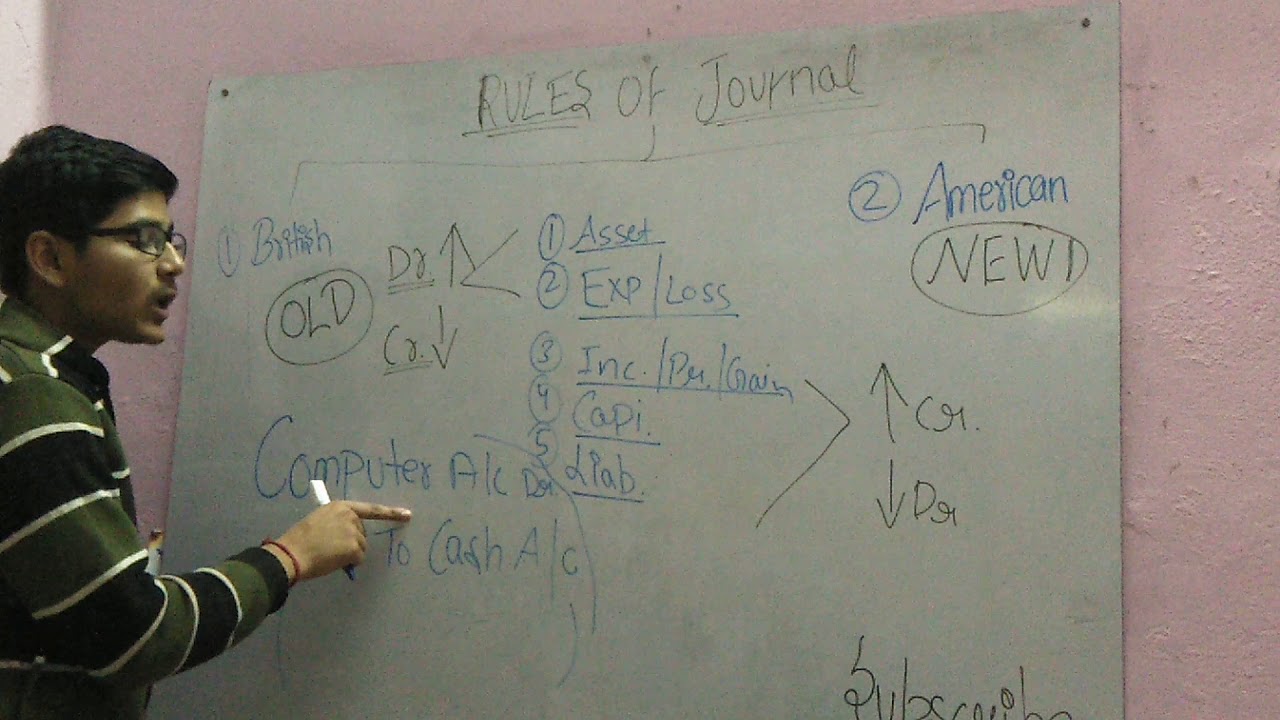 RULES Of Journal
① British
OLD
Dr. ↑
Cr. ↓
① Asset
② Exp/Loss
③ Inc./Pr./Gain
④ Capi.
⑤ Liab.
② American
NEW
↑ Cr.
↓ Dr
Computer A/c Dr
To Cash A/c
Subscribe